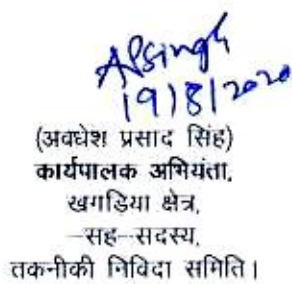 APSingh
19/8/2020
(अवधेश प्रसाद सिंह)
कार्यपालक अभियंता,
खगड़िया क्षेत्र,
–सह–सदस्य,
तकनीकी निविदा समिति।